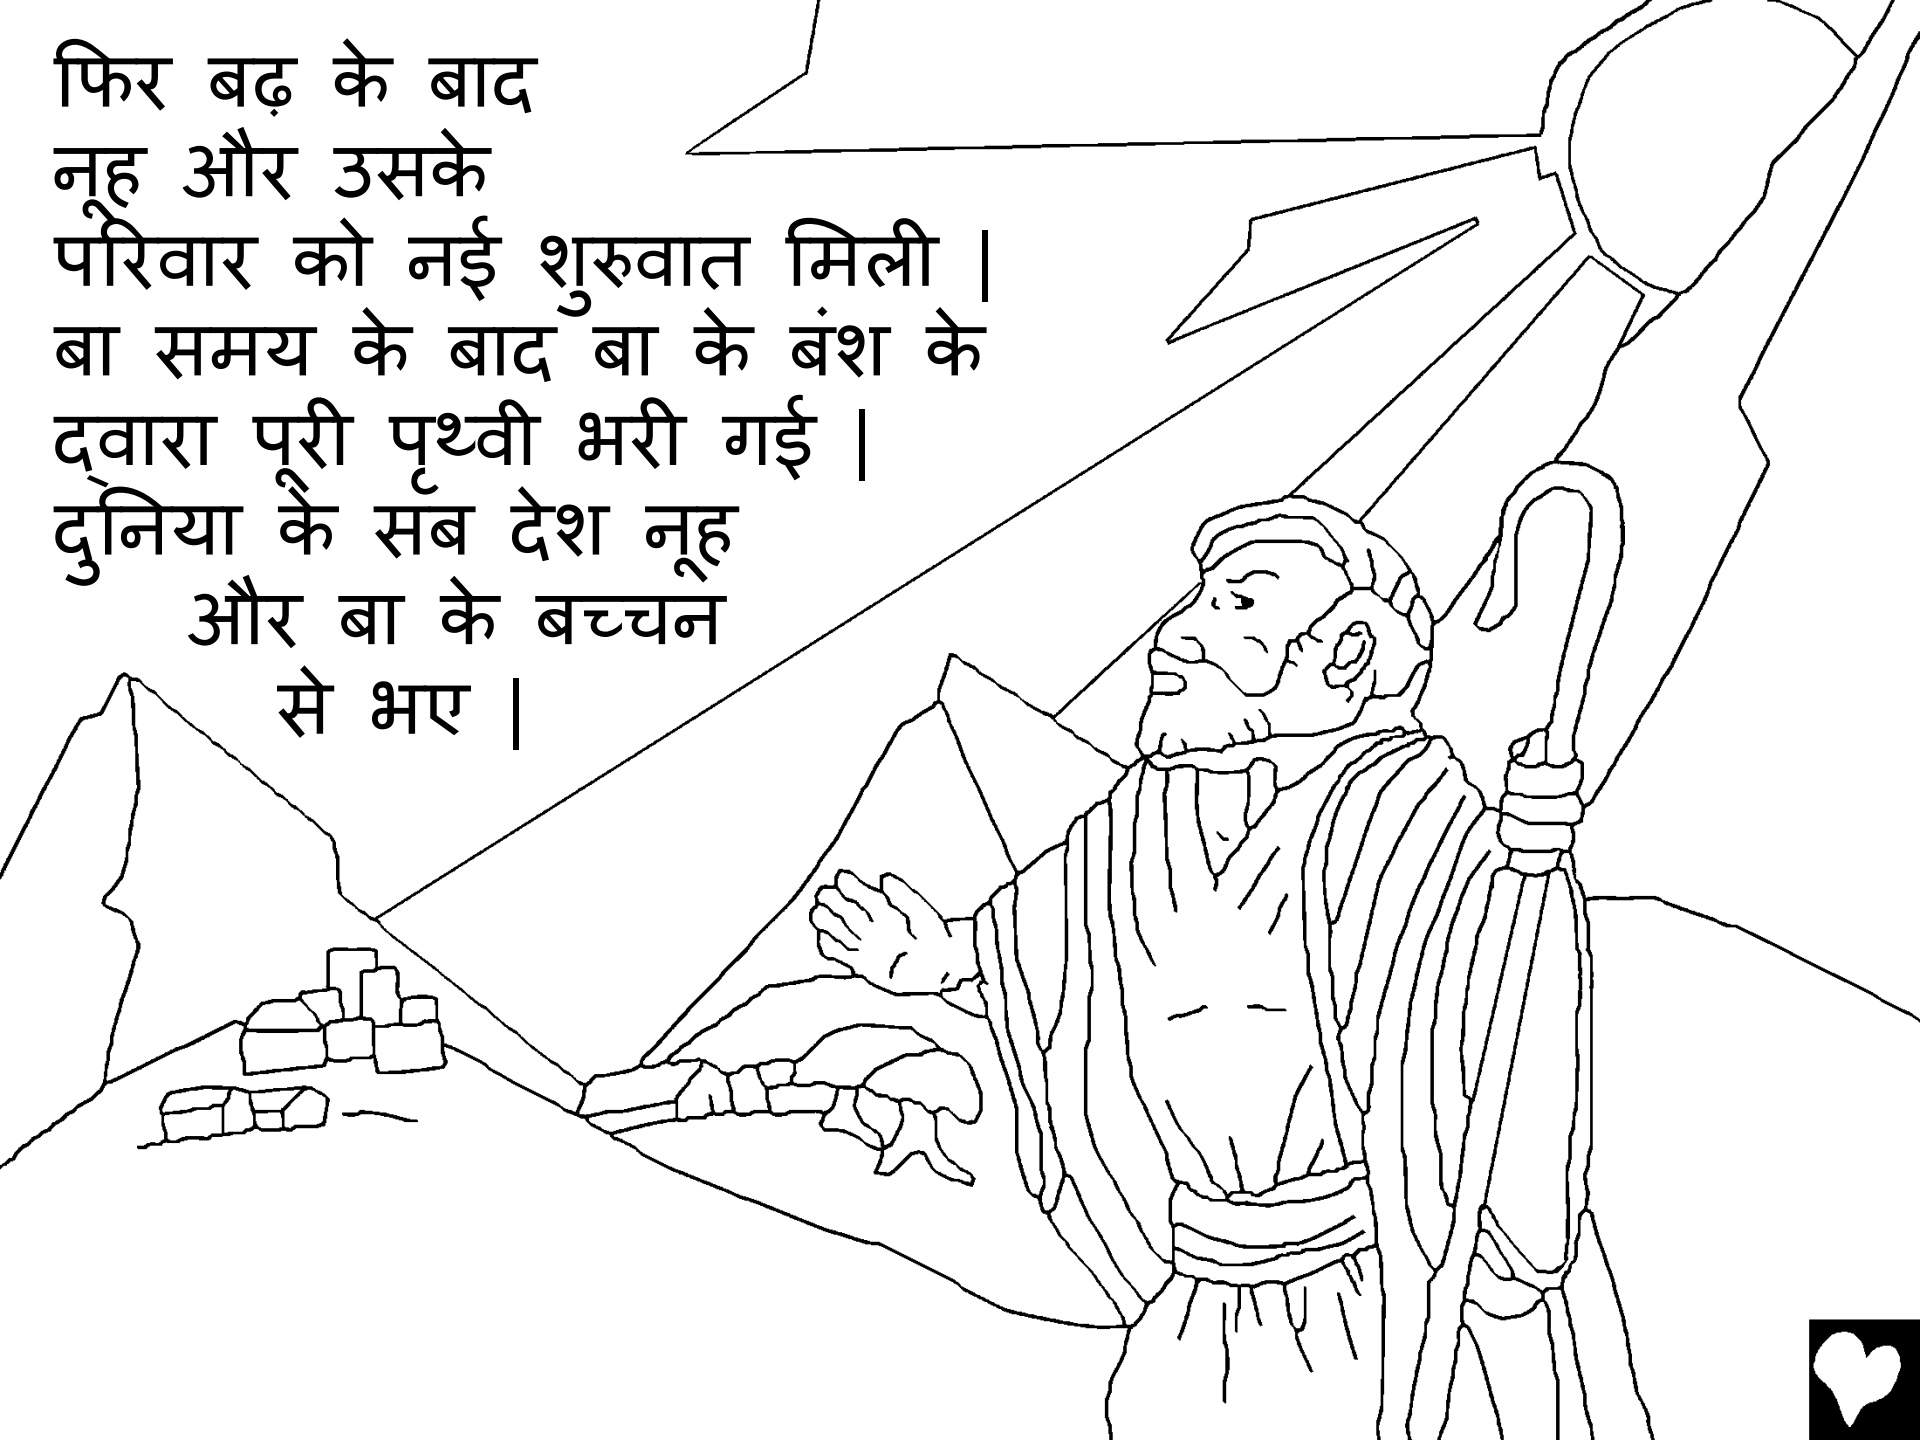 फिर बढ़ के बाद
नूह और उसके
परिवार को नई शुरुवात मिली |
बा समय के बाद बा के बंश के
द्वारा पूरी पृथ्वी भरी गई |
दुनिया के सब देश नूह
और बा के बच्चन
से भए |